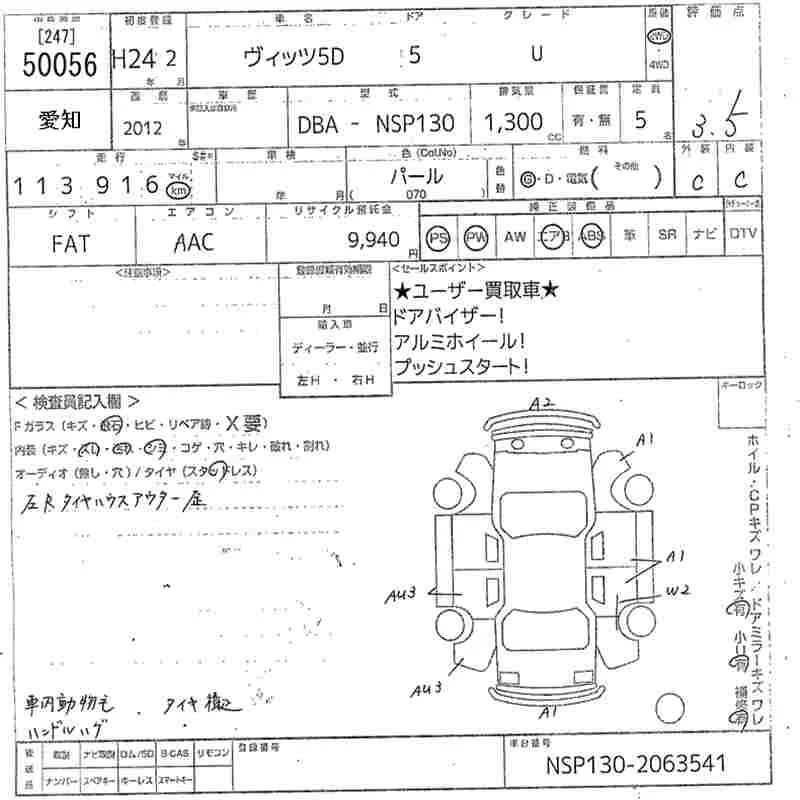 [247]
50056
初度登録
H24 2
年 月
車名
ヴィッツ5D
ドア
5
グレード
U
2WD
4WD
評価点
3.5
愛知
2012
年
車歴
型式
DBA - NSP130
排気量
1,300
CC
保証書
有・無
定員
5
名
走行
113916
マイル
km
車検
年 月
色(Col.No)
パール
( 070 )
色替
燃料
G・D・電気( その他 )
外装
C
内装
C
シフト
FAT
エアコン
AAC
リサイクル預託金
9,940
円
純正装備品
PS PW AW エアB ABS 革 SR ナビ DTV
<注意事項>
月 日
輸入車
ディーラー・並行
左H ・ 右H
<セールスポイント>
★ユーザー買取車★
ドアバイザー!
アルミホイール!
プッシュスタート!
キーロック
<検査員記入欄>
Fガラス(キズ・飛石・ヒビ・リペア跡・X要)
内装(キズ・スレ・汚れ・シミ・コゲ・穴・キレ・破れ・割れ)
オーディオ(無し・穴)/タイヤ(スタッドレス)
左Rタイヤハウスアウター歪
A2
A1
A1
W2
AU3
AU3
A1
ホイル・CPキズワレ/ドアミラーキズワレ
小キズ有 小U有 補修有
車内動物毛
ハンドルハゲ
後送品
取説 ナビ取説 ROM/SD B-CAS リモコン
ナンバー スペアキー キーレス スマートキー
登録番号
車台番号
NSP130-2063541